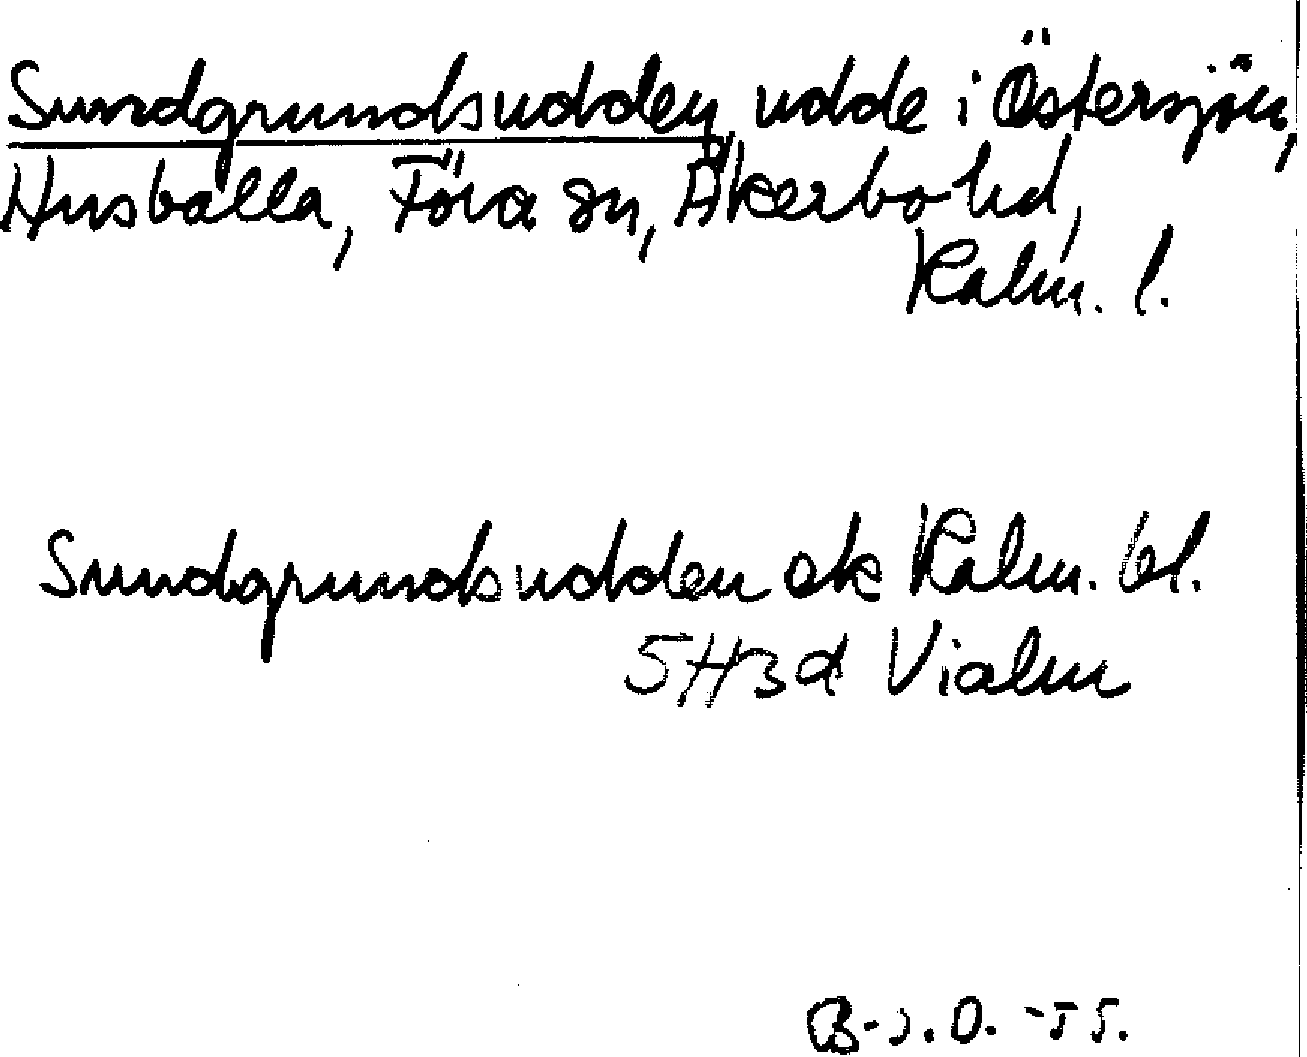 Sundgrundsudden, udde i Östersjön,
Husvalla, Föra sn, Åkerbo hd,
Kalm. l.
Sundgrundsudden ek Kalm. bl.
5H3d Vialm
B-J.O. -55.